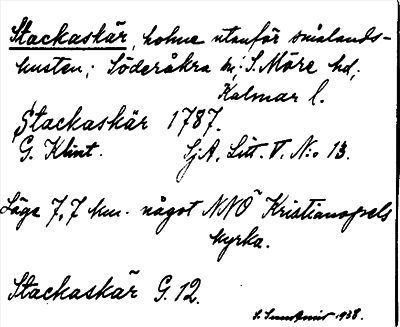 Stackaskär, holme utanför smålands-
kusten; Söderåkra sn; S. Möre hd,
Kalmar l.
Stackaskär 1787.
G. Klint. SjA, Litt. V. No 13.
Läge 7,7 km. något NNO Kristianopels
kyrka.
Stackaskär G. 12.
1938.